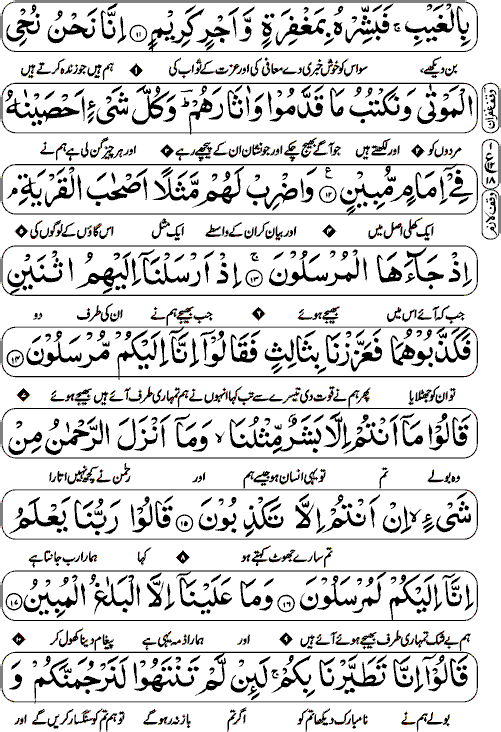 بِالْغَيْبِ ۚ فَبَشِّرْهُ بِمَغْفِرَةٍ وَّاَجْرٍ كَرِيْمٍ ۝۱۱ اِنَّا نَحْنُ نُحْيِ
بن دیکھے، سو اس کو خوش خبری دے معافی کی اور عزت کے ثواب کی ۱ ہم ہیں جو زندہ کرتے ہیں
الْمَوْتٰى وَنَكْتُبُ مَا قَدَّمُوْا وَاٰثَارَهُمْ ؕ وَكُلَّ شَىْءٍ اَحْصَيْنٰهُ
مردوں کو ۲ اور لکھتے ہیں جو آگے بھیج چکے اور جو نشان ان کے پیچھے رہے ۳ اور ہر چیز گن لی ہے ہم نے
فِىْۤ اِمَامٍ مُّبِيْنٍ ۝۱۲ وَاضْرِبْ لَهُمْ مَّثَلًا اَصْحٰبَ الْقَرْيَةِ ۘ
ایک کھلی اصل میں ۴ اور بیان کر ان کے واسطے ایک مثل اس گاؤں کے لوگوں کی ۵
اِذْ جَآءَهَا الْمُرْسَلُوْنَ ۝۱۳ اِذْ اَرْسَلْنَاۤ اِلَيْهِمُ اثْنَيْنِ
جب کہ آئے اس میں بھیجے ہوئے ۶ جب بھیجے ہم نے ان کی طرف دو
فَكَذَّبُوْهُمَا فَعَزَّزْنَا بِثَالِثٍ فَقَالُوْۤا اِنَّاۤ اِلَيْكُمْ مُّرْسَلُوْنَ ۝۱۴
تو ان کو جھٹلایا پھر ہم نے قوت دی تیسرے سے تب کہا انہوں نے ہم تمہاری طرف آئے ہیں بھیجے ہوئے ۷
قَالُوْا مَاۤ اَنْتُمْ اِلَّا بَشَرٌ مِّثْلُنَا ۙ وَمَاۤ اَنْزَلَ الرَّحْمٰنُ مِنْ
وہ بولے تم تو یہی انسان ہو جیسے ہم اور رحمٰن نے کچھ نہیں اتارا
شَىْءٍ ۙ اِنْ اَنْتُمْ اِلَّا تَكْذِبُوْنَ ۝۱۵ قَالُوْا رَبُّنَا يَعْلَمُ
تم سارے جھوٹ کہتے ہو ۸ کہا ہمارا رب جانتا ہے
اِنَّاۤ اِلَيْكُمْ لَمُرْسَلُوْنَ ۝۱۶ وَمَا عَلَيْنَاۤ اِلَّا الْبَلٰغُ الْمُبِيْنُ ۝۱۷
ہم بے شک تمہاری طرف بھیجے ہوئے آئے ہیں ۹ اور ہمارا ذمہ یہی ہے پیغام دینا کھول کر ۱۰
قَالُوْۤا اِنَّا تَطَيَّرْنَا بِكُمْ ۚ لَئِنْ لَّمْ تَنْتَهُوْا لَنَرْجُمَنَّكُمْ وَ
بولے ہم نے نامبارک دیکھا تم کو اگر تم باز نہ رہو گے تو ہم تم کو سنگسار کریں گے اور